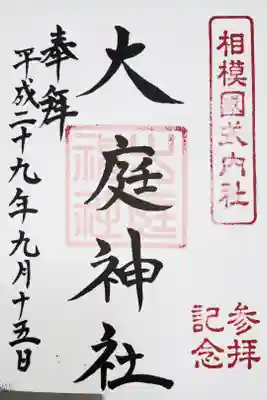 相模國式内社
参拝
記念
大庭神社
奉拜
平成二十九年九月十五日